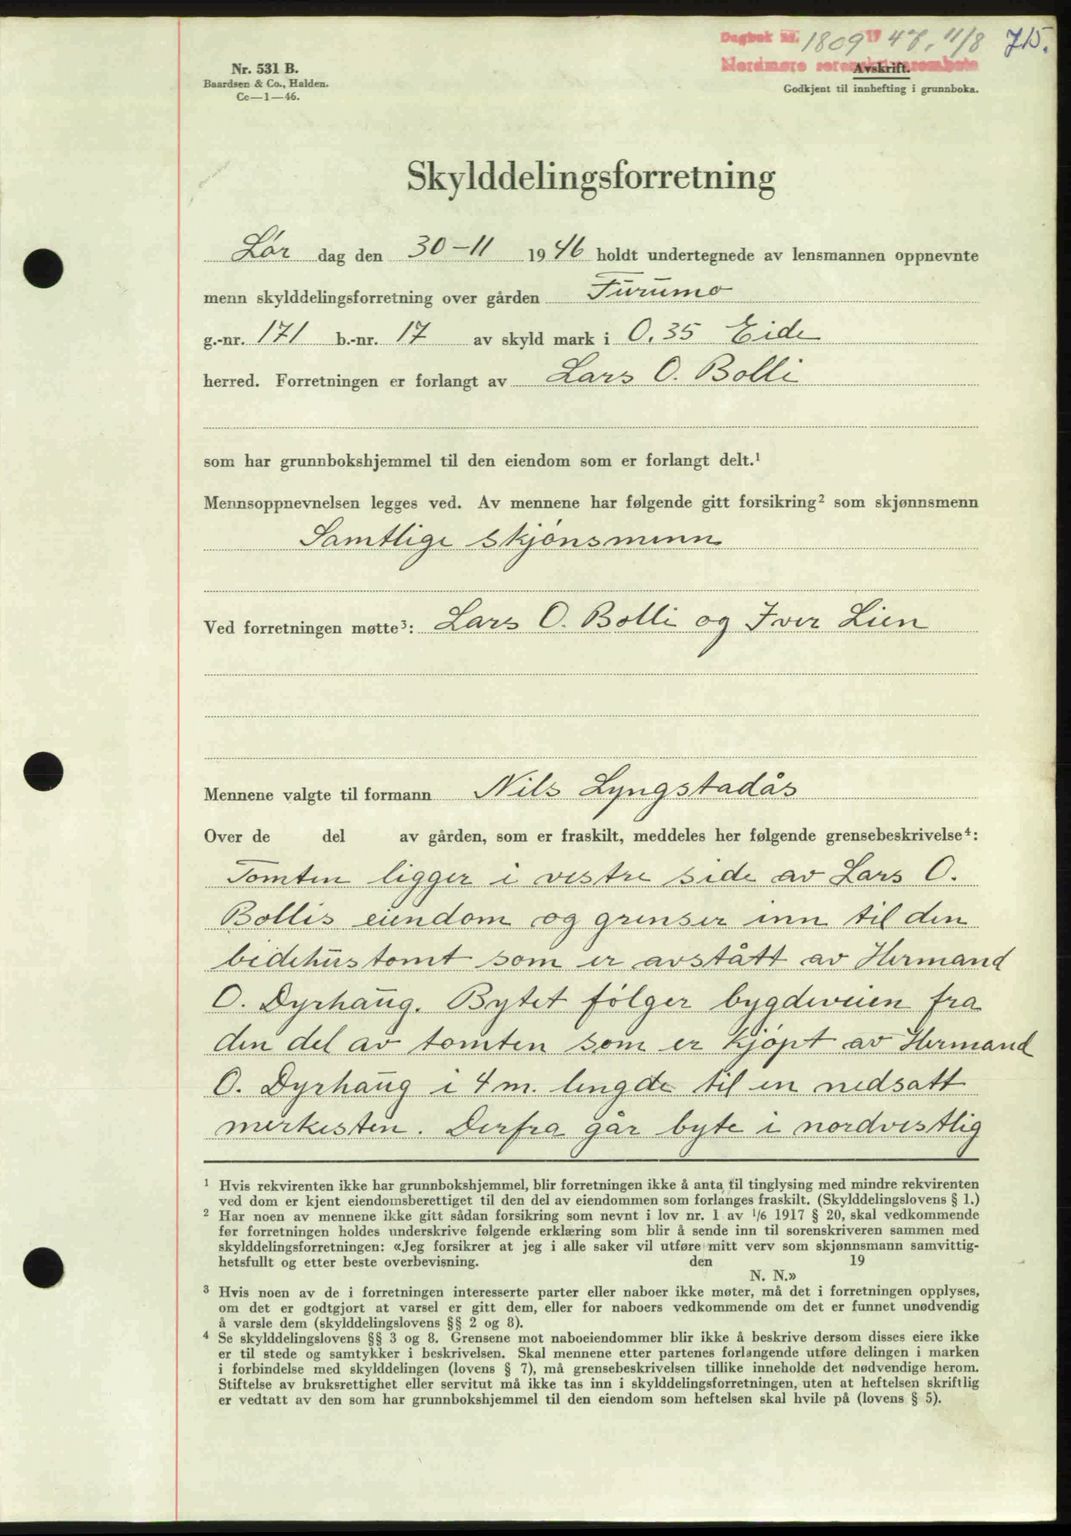 Dagbok nr. 1809 19 48, 11/8 715.
Nordmøre sorenskriverembete
Nr. 531 B.
Baardsen & Co., Halden.
Cc—1—46.
Avskrift.
Godkjent til innhefting i grunnboka.
Skylddelingsforretning
Lør dag den 30-11 1946 holdt undertegnede av lensmannen oppnevnte
menn skylddelingsforretning over gården Furumo
g.-nr. 171 b.-nr. 17 av skyld mark i 0,35 Eide
herred. Forretningen er forlangt av Lars O. Bolli
som har grunnbokshjemmel til den eiendom som er forlangt delt.¹
Mennsoppnevnelsen legges ved. Av mennene har følgende gitt forsikring² som skjønnsmenn
Samtlige skjønsmenn
Ved forretningen møtte³: Lars O. Bolli og Iver Lien
Mennene valgte til formann Nils Lyngstadås
Over de del av gården, som er fraskilt, meddeles her følgende grensebeskrivelse⁴:
Tomten ligger i vestre side av Lars O.
Bollis eiendom og grenser inn til den
bedehustomt som er avstått av Hermand
O. Dyrhaug. Bytet følger bygdeveien fra
den del av tomten som er kjøpt av Hermand
O. Dyrhaug i 4 m. lengde til en nedsatt
merkesten. Derfra går byte i nordvestlig
¹ Hvis rekvirenten ikke har grunnbokshjemmel, blir forretningen ikke å anta til tinglysing med mindre rekvirenten
ved dom er kjent eiendomsberettiget til den del av eiendommen som forlanges fraskilt. (Skylddelingslovens § 1.)
² Har noen av mennene ikke gitt sådan forsikring som nevnt i lov nr. 1 av ¹/₆ 1917 § 20, skal vedkommende
før forretningen holdes underskrive følgende erklæring som blir å sende inn til sorenskriveren sammen med
skylddelingsforretningen: «Jeg forsikrer at jeg i alle saker vil utføre mitt verv som skjønnsmann samvittig-
hetsfullt og etter beste overbevisning. den 19
N. N.»
³ Hvis noen av de i forretningen interesserte parter eller naboer ikke møter, må det i forretningen opplyses,
om det er godtgjort at varsel er gitt dem, eller for naboers vedkommende om det er funnet unødvendig
å varsle dem (skylddelingslovens §§ 2 og 8).
⁴ Se skylddelingslovens §§ 3 og 8. Grensene mot naboeiendommer blir ikke å beskrive dersom disses eiere ikke
er til stede og samtykker i beskrivelsen. Skal mennene etter partenes forlangende utføre delingen i marken
i forbindelse med skylddelingen (lovens § 7), må grensebeskrivelsen tillike inneholde det nødvendige herom.
Stiftelse av bruksrettighet eller servitut må ikke tas inn i skylddelingsforretningen, uten at heftelsen skriftlig
er vedtatt av den som har grunnbokshjemmel til den eiendom som heftelsen skal hvile på (lovens § 5).